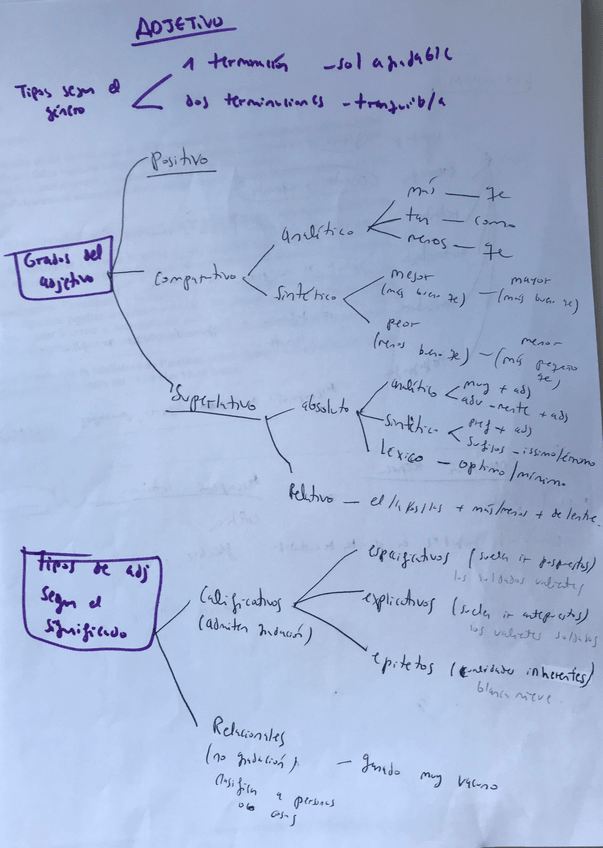 ADJETIVO
Tipos según el género
1 terminación - sol agradable
dos terminaciones - tranquilo/a
Positivo
Grados del adjetivo
Comparativo
analítico
más — qe
tan — como
menos — qe
Sintético
mejor (más bueno qe) — mayor (más bueno qe)
peor (menos bueno qe) — menor (más pequeño qe)
Superlativo
absoluto
analítico
muy + adj
adv -mente + adj
Sintético
pref + adj
Sufijos -issimo/érrimo
Léxico — óptimo/mínimo
Relativo — el/la/los/las + más/menos + de/entre
Tipos de adj según el significado
Calificativos (admiten gradación)
especificativos (suelen ir pospuestos)
los soldados valientes
explicativos (suelen ir antepuestos)
los valientes soldados
epítetos (cualidades inherentes)
blanca nieve
Relacionales (no gradación) — ganado muy vacuno
Clasifican a personas o cosas